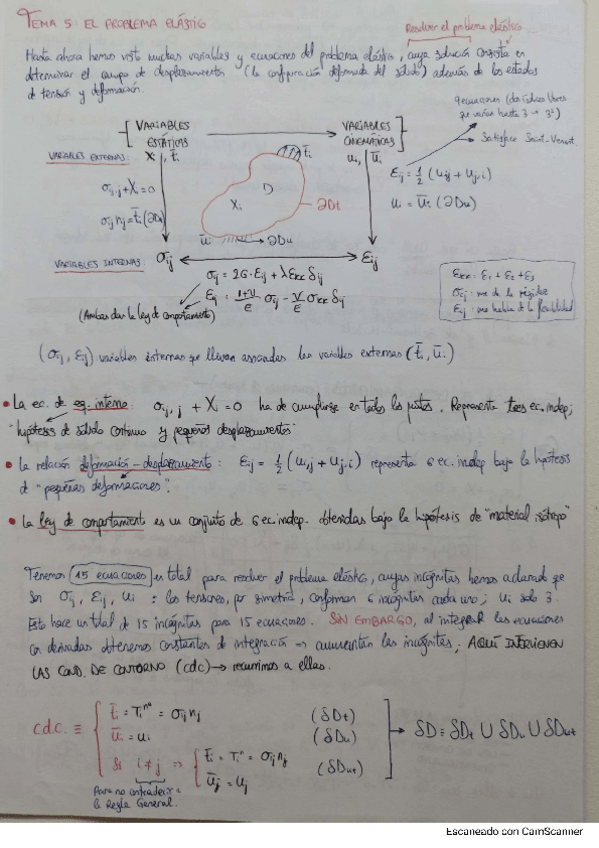 TEMA 5: EL PROBLEMA ELÁSTICO
Resolver el problema elástico
Hasta ahora hemos visto muchas variables y ecuaciones del problema elástico, cuya solución consiste en
determinar el campo de desplazamientos (la configuración deformada del sólido) además de los estados
de tensión y deformación.
9 ecuaciones (dos índices libres
que varían hasta 3 → 3²)
VARIABLES ESTÁTICAS
VARIABLES CINEMÁTICAS
Satisface Saint-Venant
VARIABLES EXTERNAS: Xi, t̄i
t̄i
ui, ūi
εij = 1/2 (ui,j + uj,i)
σij,j + Xi = 0
D
Xi
∂Dt
ui = ūi (∂Du)
σij nj = t̄i (∂Dt)
ū
∂Du
VARIABLES INTERNAS: σij
εij
σij = 2G·εij + λεkk δij
εij = (1+ν)/E σij - ν/E σkk δij
(Ambas dan la ley de comportamiento)
εkk = ε1 + ε2 + ε3
σij: me da la rigidez
εij: me habla de la flexibilidad
(σij, εij) variables internas que llevan asociadas las variables externas (t̄i, ūi)
• La ec. de eq. interno: σij,j + Xi = 0 ha de cumplirse en todos los puntos. Representa tres ec. indep;
"hipótesis de sólido continuo y pequeños desplazamientos"
• La relación deformación-desplazamiento: εij = 1/2 (ui,j + uj,i) representa 6 ec. indep bajo la hipótesis
de "pequeñas deformaciones".
• La ley de comportamiento es un conjunto de 6 ec. indep. obtenidas bajo la hipótesis de "material isótropo"
Tenemos 15 ecuaciones en total para resolver el problema elástico, cuyas incógnitas hemos aclarado que
son σij, εij, ui: los tensores, por simetría, conforman 6 incógnitas cada uno; ui solo 3.
Esto hace un total de 15 incógnitas para 15 ecuaciones. SIN EMBARGO, al integrar las ecuaciones
con derivadas obtenemos constantes de integración → aumentan las incógnitas; AQUÍ INTERVIENEN
LAS COND. DE CONTORNO (cdc) → recurrimos a ellas.
c.d.c. ≡
t̄i = Ti^n = σij nj (δDt)
ūi = ui (δDu)
Si i≠j ⇒ t̄i = Ti^n = σij nj
ūj = uj (δDut)
δD = δDt ∪ δDu ∪ δDut
Para no contradecir a
la Regla General.
Escaneado con CamScanner